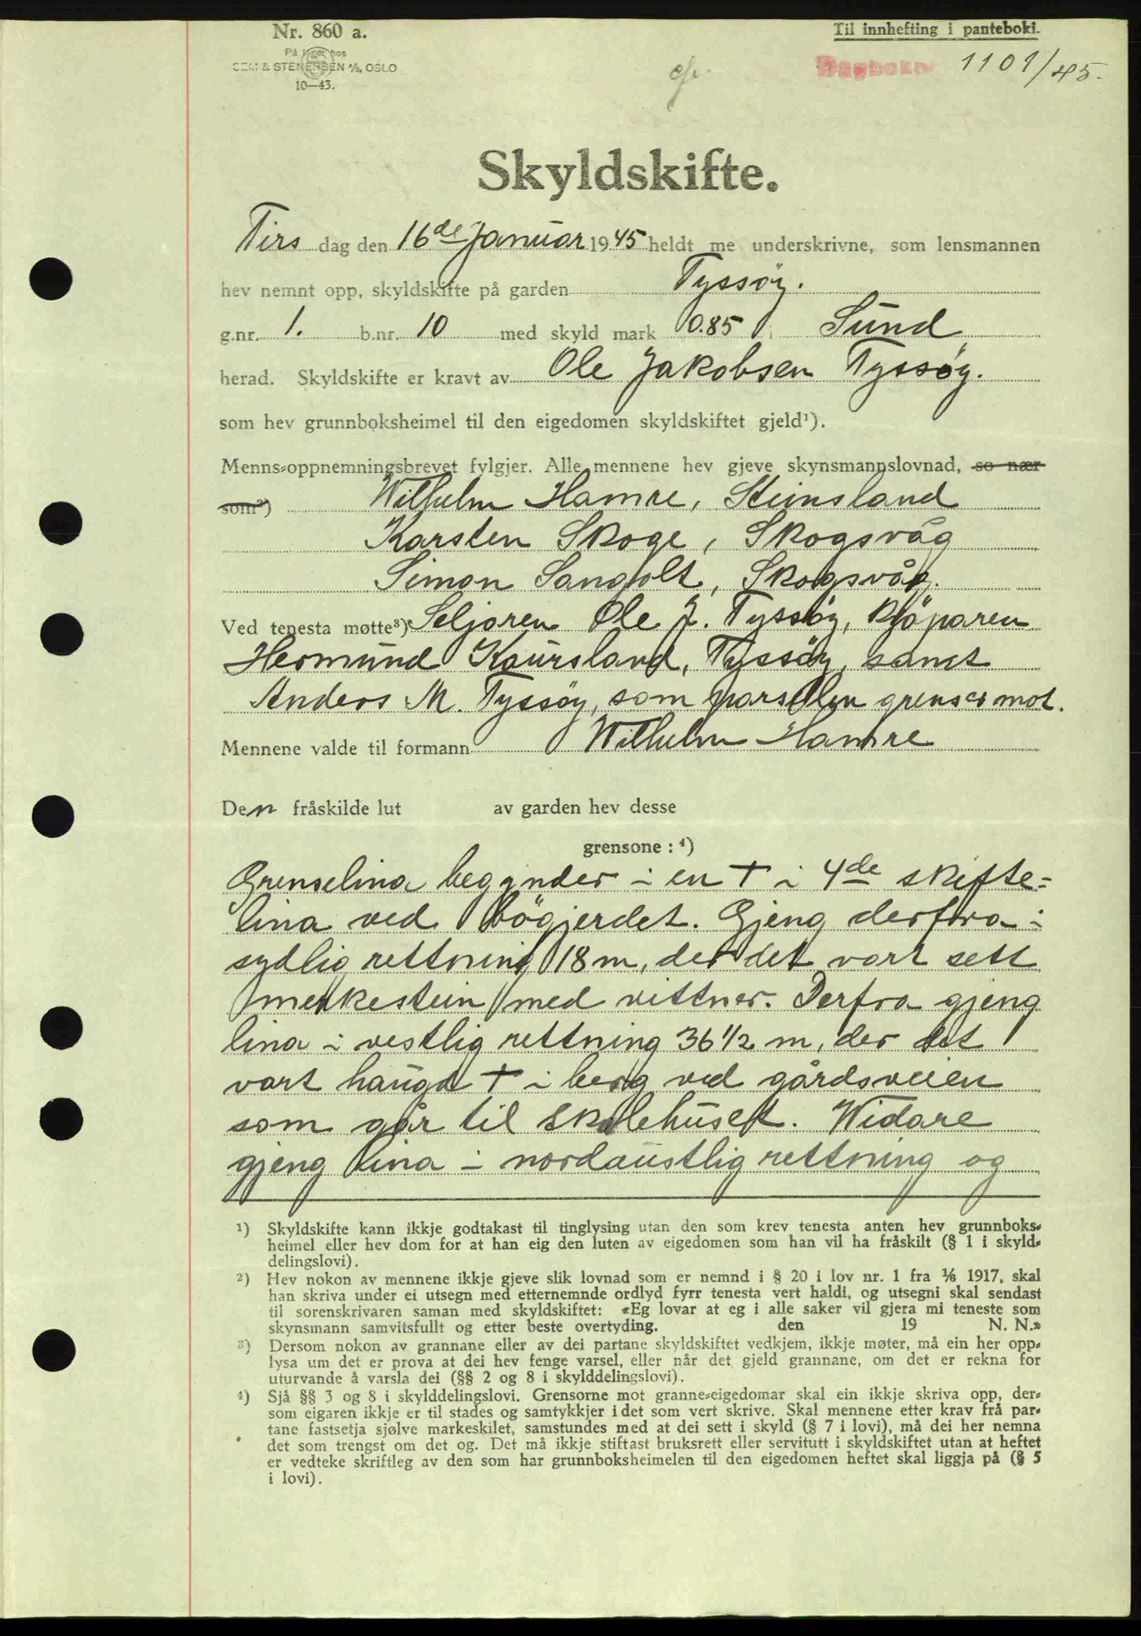 Nr. 860 a.
Til innhefting i panteboki.
På lager hos
SEM & STENERSEN A/S, OSLO
10—43.
Dagboknr 1101/45.
Skyldskifte.
Tirs dag den 16de Januar 1945 heldt me underskrivne, som lensmannen
hev nemnt opp, skyldskifte på garden Tyssöy.
g.nr. 1. b.nr. 10 med skyld mark 0.85 i Sund
herad. Skyldskifte er kravt av Ole Jakobsen Tyssøy.
som hev grunnboksheimel til den eigedomen skyldskiftet gjeld¹).
Menns-oppnemningsbrevet fylgjer. Alle mennene hev gjeve skynsmannslovnad, so nær
som²) Wilhelm Hamre, Steinsland
Karsten Skoge, Skogsvåg
Simon Sangolt, Skogsvåg.
Ved tenesta møtte³) Seljaren Ole J. Tyssöy, Kjöparen
Hermund Kaursland, Tyssöy, samt
Anders M. Tyssöy, som parsellen grenser mot.
Mennene valde til formann Wilhelm Hamre
Den fråskilde lut av garden hev desse
grensone: ⁴)
Grenselina begynder i en + i 4de skifte-
lina ved bögjerdet. Gjeng derfra i
sydlig rettning 18 m, der det vart sett
merkestein med vittner. Derfra gjeng
lina i vestlig rettning 36 1/2 m, der det
vart haugd + i berg ved gårdsveien
som går til skolehuset. Widare
gjeng lina i nordaustlig rettning og
¹) Skyldskifte kann ikkje godtakast til tinglysing utan den som krev tenesta anten hev grunnboks-
heimel eller hev dom for at han eig den luten av eigedomen som han vil ha fråskilt (§ 1 i skyld-
delingslovi).
²) Hev nokon av mennene ikkje gjeve slik lovnad som er nemnd i § 20 i lov nr. 1 fra 1/6 1917, skal
han skriva under ei utsegn med etternemnde ordlyd fyrr tenesta vert haldi, og utsegni skal sendast
til sorenskrivaren saman med skyldskiftet: «Eg lovar at eg i alle saker vil gjera mi teneste som
skynsmann samvitsfullt og etter beste overtyding. den 19 N. N.»
³) Dersom nokon av grannane eller av dei partane skyldskiftet vedkjem, ikkje møter, må ein her opp-
lysa um det er prova at dei hev fenge varsel, eller når det gjeld grannane, om det er rekna for
uturvande å varsla dei (§§ 2 og 8 i skylddelingslovi).
⁴) Sjå §§ 3 og 8 i skylddelingslovi. Grensorne mot granne-eigedomar skal ein ikkje skriva opp, der-
som eigaren ikkje er til stades og samtykkjer i det som vert skrive. Skal mennene etter krav frå par-
tane fastsetja sjølve markeskilet, samstundes med at dei sett i skyld (§ 7 i lovi), må dei her nemna
det som trengst om det og. Det må ikkje stiftast bruksrett eller servitutt i skyldskiftet utan at heftet
er vedteke skriftleg av den som har grunnboksheimelen til den eigedomen heftet skal liggja på (§ 5
i lovi).